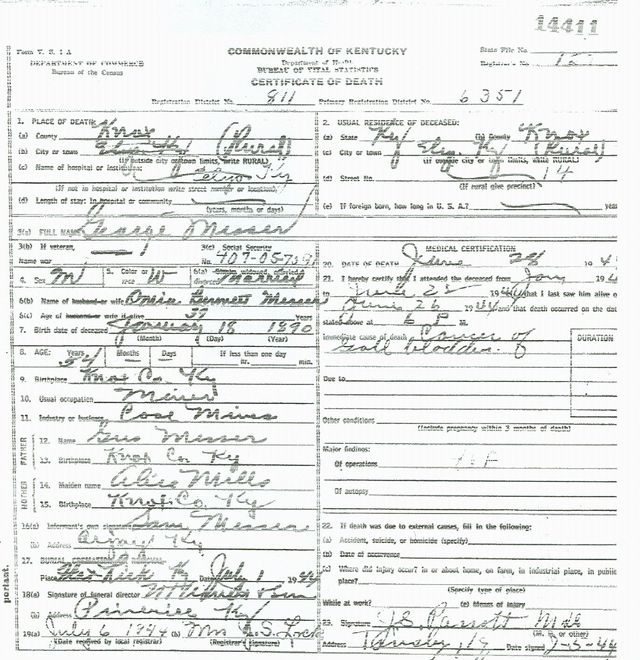 14411
Form V. S. 1 A
DEPARTMENT OF COMMERCE
Bureau of the Census
COMMONWEALTH OF KENTUCKY
Department of Health
BUREAU OF VITAL STATISTICS
CERTIFICATE OF DEATH
State File No.
Registrar's No.
Registration District No. 811 Primary Registration District No. 6351
1. PLACE OF DEATH:
(a) County Knox (Rural)
(b) City or town
(If outside city or town limits, write RURAL)
(c) Name of hospital or institution:
(If not in hospital or institution write street number or location)
(d) Length of stay: In hospital or community
(years, months or days)
2. USUAL RESIDENCE OF DECEASED:
(a) State Ky (b) County Knox
(c) City or town Ky (Rural)
(If outside city or town limits, write RURAL)
(d) Street No. 14
(If rural give precinct)
(e) If foreign born, how long in U. S. A.? years
3(a) FULL NAME George Messer
3(b) If veteran,
Name war
3(c) Social Security
No. 407-05-
4. Sex M
5. Color or race W
6(a) widowed, married, divorced Married
6(b) Name of husband or wife Bennett Messer
6(c) Age of husband or wife if alive
7. Birth date of deceased January 18 1890
(Month) (Day) (Year)
8. AGE: Years 54 Months Days If less than one day
hr. min.
9. Birthplace Knox Co. Ky
10. Usual occupation Miner
11. Industry or business Coal Mines
FATHER
12. Name Gus Messer
13. Birthplace Knox Co. Ky
MOTHER
14. Maiden name Alice Mills
15. Birthplace Knox Co. Ky
16(a) Informant's own signature Sam Messer
(b) Address Ky
17. BURIAL, CREMATION, REMOVAL
Place Ky Date July 1 1944
18(a) Signature of funeral director
(b) Address Pineville Ky
19(a) July 6 1944 (b) Mrs
(Date received by local registrar) (Registrar's signature)
MEDICAL CERTIFICATION
20. DATE OF DEATH June 28 194
21. I hereby certify that I attended the deceased from Jan 194
to June 194 that I last saw him alive o
June 26 1944 and that death occurred on the dat
stated above at P M.
Immediate cause of death Cancer of
Gall bladder
DURATION
Due to
Other conditions
(Include pregnancy within 3 months of death)
Major findings:
Of operations
Of autopsy
22. If death was due to external causes, fill in the following:
(a) Accident, suicide, or homicide (specify)
(b) Date of occurrence
(c) Where did injury occur? in or about home, on farm, in industrial place, in public
place?
(Specify type of place)
While at work? (e) Means of injury
23. Signature J.S. Parrott M.D.
(M. D. or other)
Address Ky Date signed 7-3-44
portant.